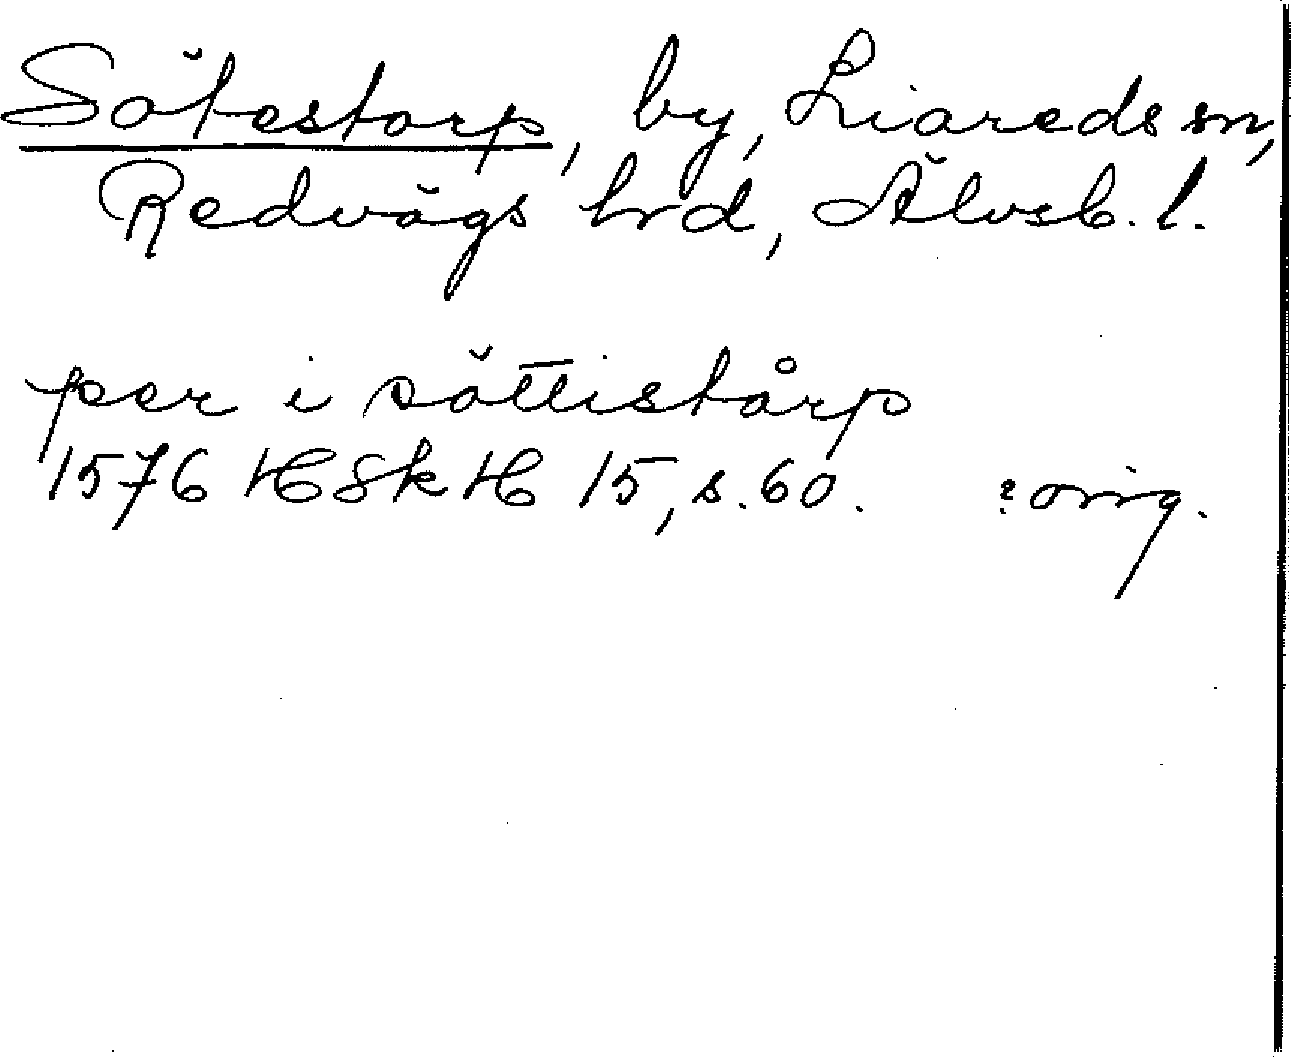 Sötestorp, by, Liareds sn,
Redvägs hrd, Älvsb. l.
per i söttistårp
1576 HSkH 15, s. 60. ? orig.